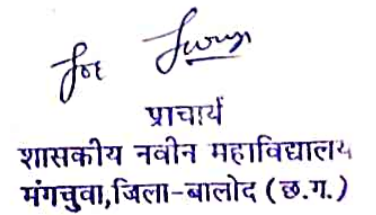 for
प्राचार्य
शासकीय नवीन महाविद्यालय
मंगचुवा,जिला-बालोद (छ.ग.)